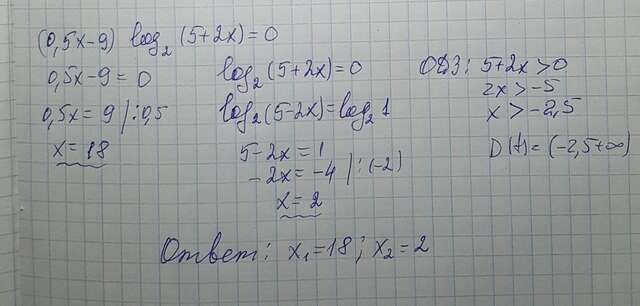 (0,5x-9) log₂ (5+2x)=0
0,5x-9=0
0,5x=9 |:0,5
x=18
log₂(5+2x)=0
log₂(5-2x)=log₂1
5-2x=1
-2x=-4 |:(-2)
x=2
ОДЗ: 5+2x>0
2x>-5
x>-2,5
D(f)=(-2,5+∞)
Ответ: x₁=18; x₂=2